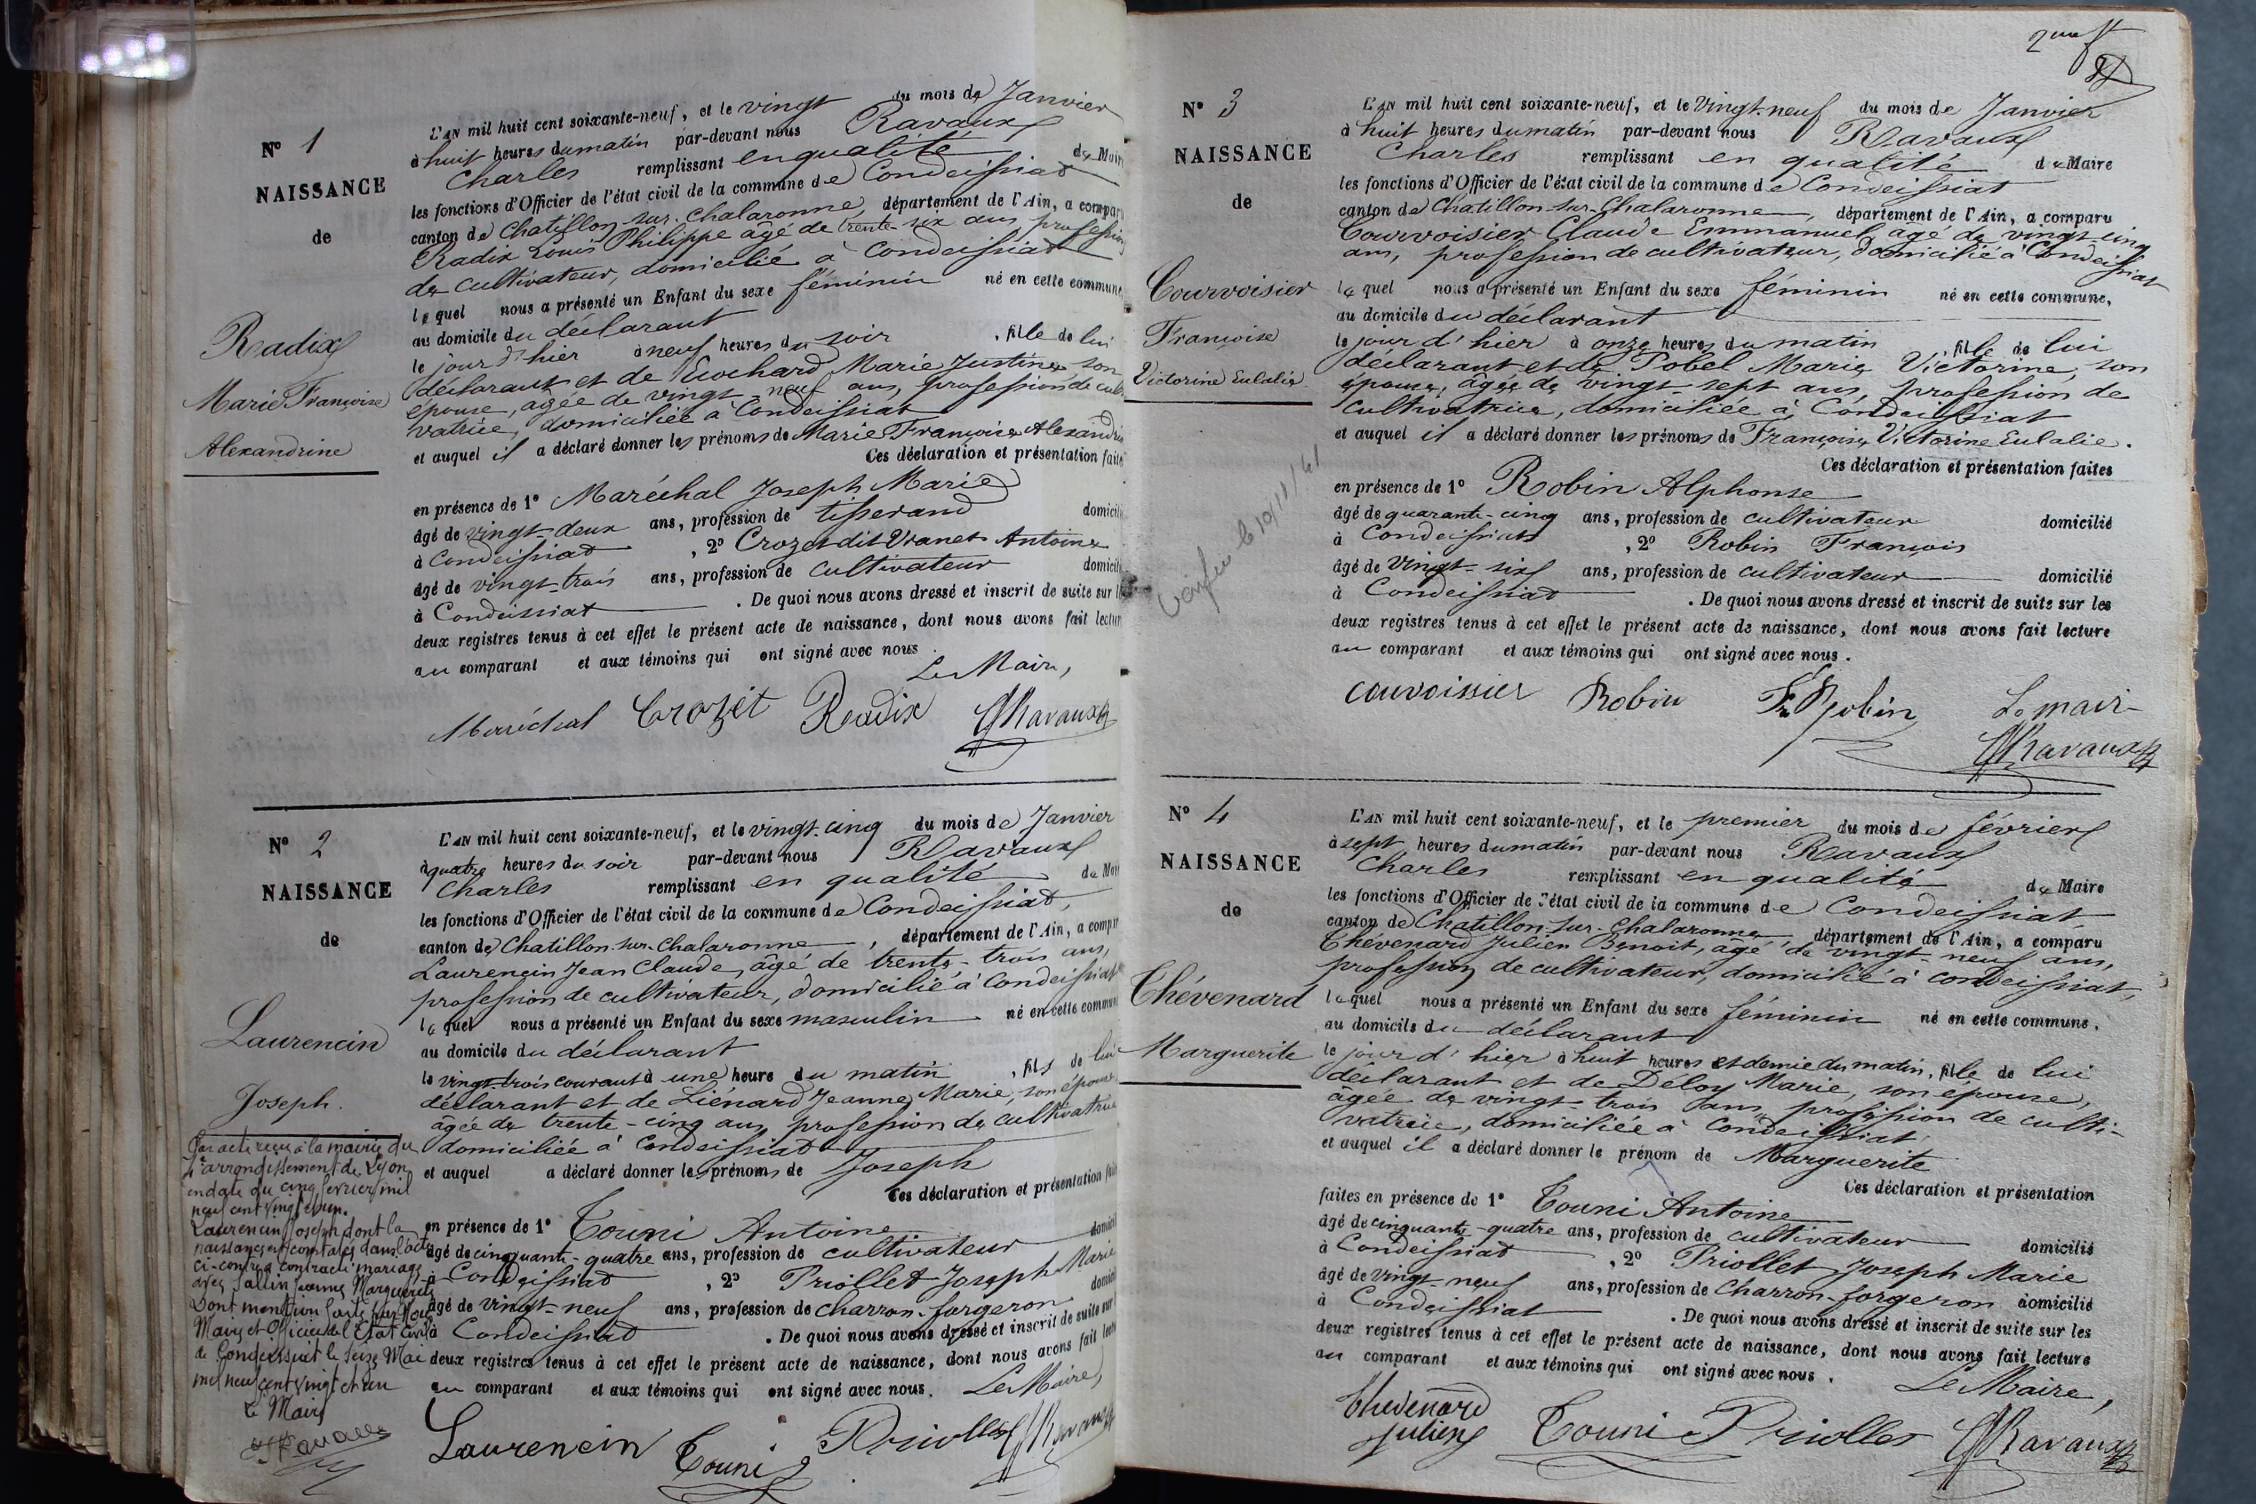 N° 1
NAISSANCE
de
Radix
Marie Françoise
Alexandrine
L'AN mil huit cent soixante-neuf, et le vingt du mois de Janvier
à huit heures du matin par-devant nous Ravaux
Charles remplissant en qualité de Maire
les fonctions d'Officier de l'état civil de la commune de Condeissiat
canton de Chatillon-sur-Chalaronne, département de l'Ain, a comparu
Radix Louis Philippe âgé de trente six ans profession
de cultivateur, domicilié à Condeissiat
lequel nous a présenté un Enfant du sexe féminin né en cette commune,
au domicile du déclarant
le jour d'hier à neuf heures du soir, fille de lui
déclarant et de Marie Justine, son
épouse, âgée de vingt-neuf ans, profession de culti-
vatrice, domiciliée à Condeissiat
et auquel il a déclaré donner les prénoms de Marie Françoise Alexandrine
Ces déclaration et présentation faites
en présence de 1° Maréchal Joseph Marie
âgé de vingt-deux ans, profession de tisserand domicilié
à Condeissiat, 2° Crozet dit Vranet Antoine
âgé de vingt-trois ans, profession de cultivateur domicilié
à Condeissiat. De quoi nous avons dressé et inscrit de suite sur les
deux registres tenus à cet effet le présent acte de naissance, dont nous avons fait lecture
au comparant et aux témoins qui ont signé avec nous
Le Maire,
Maréchal Crozet Radix Ravaux
N° 2
NAISSANCE
de
Laurencin
Joseph.
Par acte reçu à la mairie du
arrondissement de Lyon
en date du cinq février mil
neuf cent vingt et un.
Laurencin Joseph dont la
naissance est constatée dans l'acte
ci-contre a contracté mariage
avec Jallin Jeanne Marguerite
Dont mention faite par Nous
Maire et Officier de l'État Civil
de Condeissiat le seize Mai
mil neuf cent vingt et un
Le Maire
L'AN mil huit cent soixante-neuf, et le vingt-cinq du mois de Janvier
à quatre heures du soir par-devant nous Ravaux
Charles remplissant en qualité de Maire
les fonctions d'Officier de l'état civil de la commune de Condeissiat,
canton de Chatillon-sur-Chalaronne, département de l'Ain, a comparu
Laurencin Jean Claude, âgé de trente-trois ans,
profession de cultivateur, domicilié à Condeissiat
lequel nous a présenté un Enfant du sexe masculin né en cette commune
au domicile du déclarant
le vingt-trois courant à une heure du matin, fils de lui
déclarant et de Liénard Jeanne Marie, son épouse
âgée de trente-cinq ans, profession de cultivatrice
domiciliée à Condeissiat
et auquel a déclaré donner les prénoms de Joseph
Ces déclaration et présentation faites
en présence de 1° Touni Antoine
âgé de cinquante-quatre ans, profession de cultivateur domicilié
à Condeissiat, 2° Priollet Joseph Marie
âgé de vingt-neuf ans, profession de charron-forgeron domicilié
à Condeissiat. De quoi nous avons dressé et inscrit de suite sur
deux registres tenus à cet effet le présent acte de naissance, dont nous avons fait lecture
au comparant et aux témoins qui ont signé avec nous. Le Maire,
Laurencin Touni Priollet Ravaux
N° 3
NAISSANCE
de
Courvoisier
Françoise
Victorine Eulalie
L'AN mil huit cent soixante-neuf, et le Vingt-neuf du mois de Janvier
à huit heures du matin par-devant nous Ravaux
Charles remplissant en qualité de Maire
les fonctions d'Officier de l'état civil de la commune de Condeissiat
canton de Chatillon-sur-Chalaronne, département de l'Ain, a comparu
Courvoisier Claude Emmanuel âgé de vingt-cinq
ans, profession de cultivateur, domicilié à Condeissiat
lequel nous a présenté un Enfant du sexe féminin né en cette commune,
au domicile du déclarant
le jour d'hier à onze heures du matin, fille de lui
déclarant et de Pobel Marie Victorine, son
épouse, âgée de vingt-sept ans, profession de
cultivatrice, domiciliée à Condeissiat
et auquel il a déclaré donner les prénoms de Françoise Victorine Eulalie.
Ces déclaration et présentation faites
en présence de 1° Robin Alphonse
âgé de quarante-cinq ans, profession de cultivateur domicilié
à Condeissiat, 2° Robin François
âgé de Vingt-six ans, profession de cultivateur domicilié
à Condeissiat. De quoi nous avons dressé et inscrit de suite sur les
deux registres tenus à cet effet le présent acte de naissance, dont nous avons fait lecture
au comparant et aux témoins qui ont signé avec nous.
Couvoissier Robin Fr Robin Le mair
Ravaux
N° 4
NAISSANCE
de
Thévenard
Marguerite
L'AN mil huit cent soixante-neuf, et le premier du mois de février
à sept heures du matin par-devant nous Ravaux
Charles remplissant en qualité de Maire
les fonctions d'Officier de l'état civil de la commune de Condeissiat
canton de Chatillon-sur-Chalaronne, département de l'Ain, a comparu
Thévenard Julien Benoit, âgé de vingt-neuf ans,
profession de cultivateur, domicilié à Condeissiat,
lequel nous a présenté un Enfant du sexe féminin né en cette commune.
au domicile du déclarant
le jour d'hier à huit heures et demie du matin, fille de lui
déclarant et de Déloy Marie, son épouse,
âgée de vingt-trois ans, profession de culti-
vatrice, domiciliée à Condeissiat,
et auquel il a déclaré donner le prénom de Marguerite
Ces déclaration et présentation
faites en présence de 1° Touni Antoine
âgé de cinquante-quatre ans, profession de cultivateur domicilié
à Condeissiat, 2° Priollet Joseph Marie
âgé de Vingt-neuf ans, profession de Charron-forgeron domicilié
à Condeissiat. De quoi nous avons dressé et inscrit de suite sur les
deux registres tenus à cet effet le présent acte de naissance, dont nous avons fait lecture
au comparant et aux témoins qui ont signé avec nous.
Le Maire,
Thevenard
julien Touni Priollet Ravaux